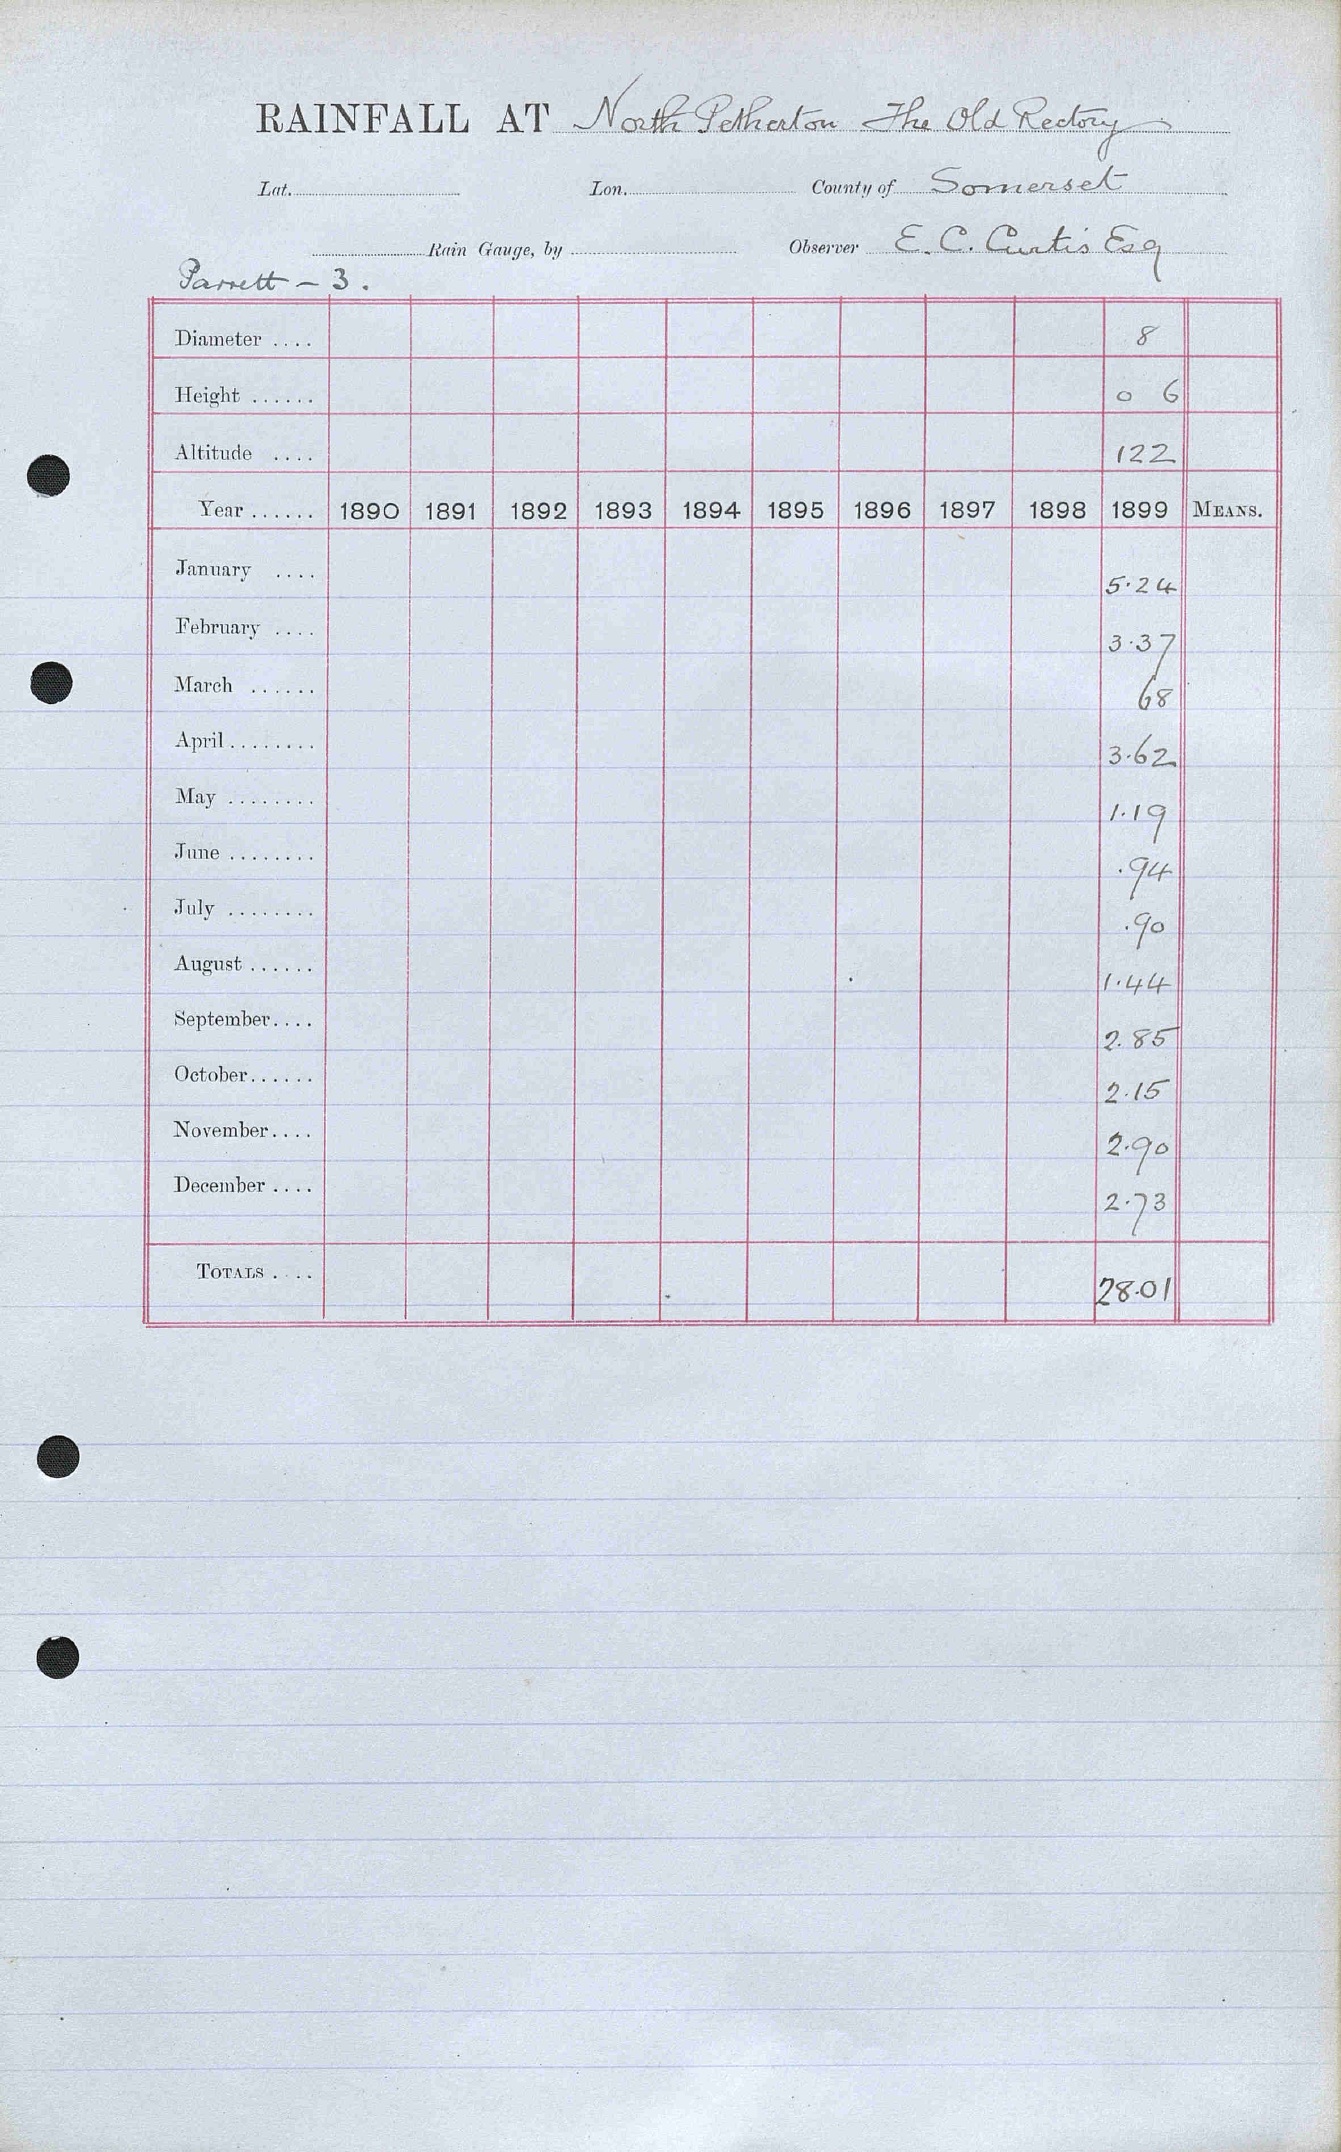 RAINFALL AT North Petherton The Old Rectory
Lat. Lon. County of Somerset
Rain Gauge, by Observer E. C. Curtis Esq
Parrett - 3.
Diameter .... 8
Height ...... 0 6
Altitude .... 122
Year ...... 1890 1891 1892 1893 1894 1895 1896 1897 1898 1899 MEANS.
January .... 5.24
February .... 3.37
March ...... 68
April ........ 3.62
May ........ 1.19
June ........ .94
July ........ .90
August ...... 1.44
September.... 2.85
October...... 2.15
November.... 2.90
December .... 2.73
TOTALS .... 28.01